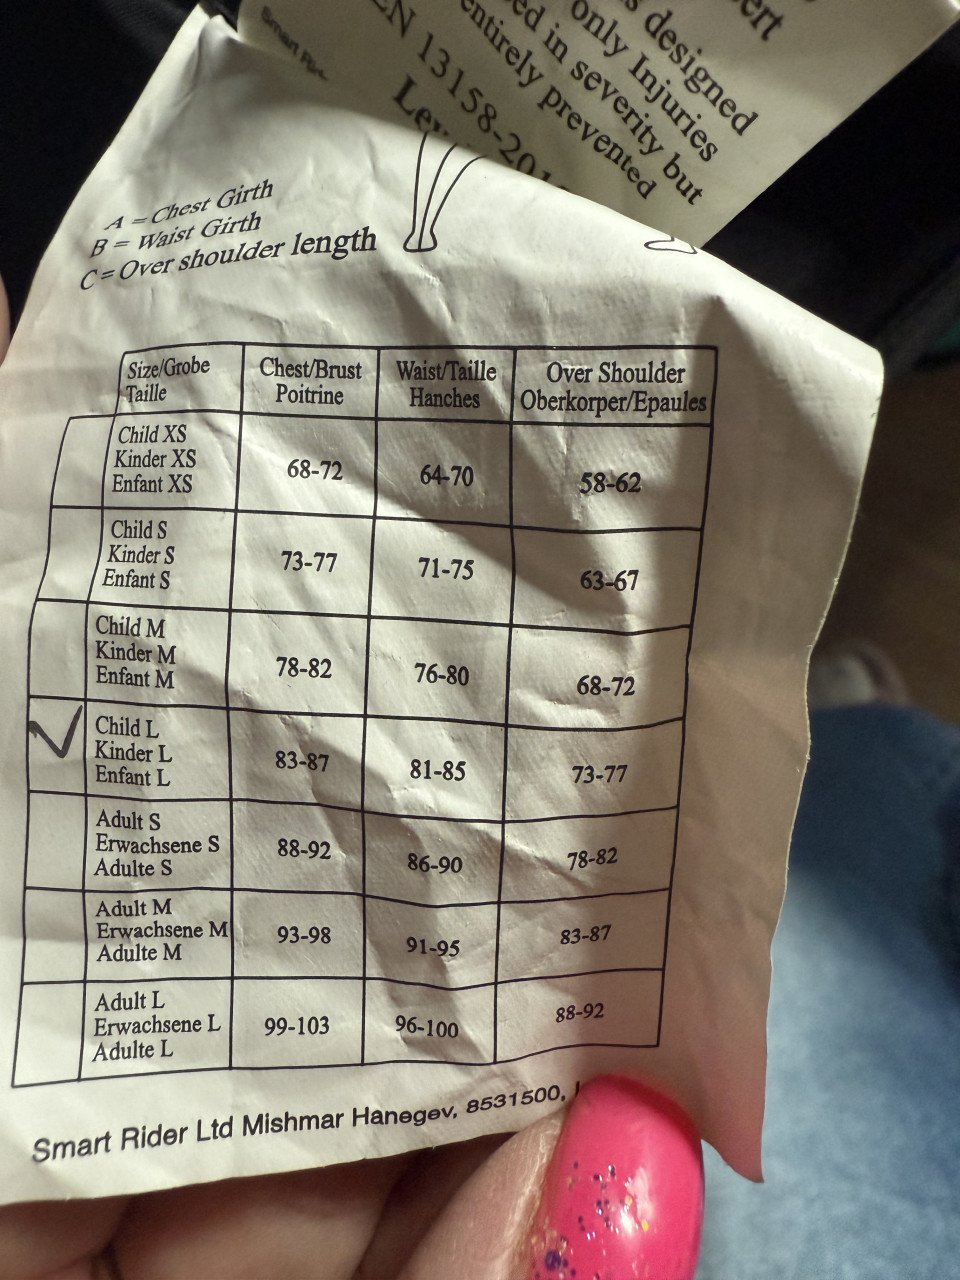 ert
s designed
only Injuries
ed in severity but
entirely prevented
EN 13158-201
Lev
Smart Rid
A = Chest Girth
B = Waist Girth
C = Over shoulder length
Size/Grobe Taille
Chest/Brust Poitrine
Waist/Taille Hanches
Over Shoulder Oberkorper/Epaules
Child XS
Kinder XS
Enfant XS
68-72
64-70
58-62
Child S
Kinder S
Enfant S
73-77
71-75
63-67
Child M
Kinder M
Enfant M
78-82
76-80
68-72
Child L
Kinder L
Enfant L
83-87
81-85
73-77
Adult S
Erwachsene S
Adulte S
88-92
86-90
78-82
Adult M
Erwachsene M
Adulte M
93-98
91-95
83-87
Adult L
Erwachsene L
Adulte L
99-103
96-100
88-92
Smart Rider Ltd Mishmar Hanegev, 8531500,